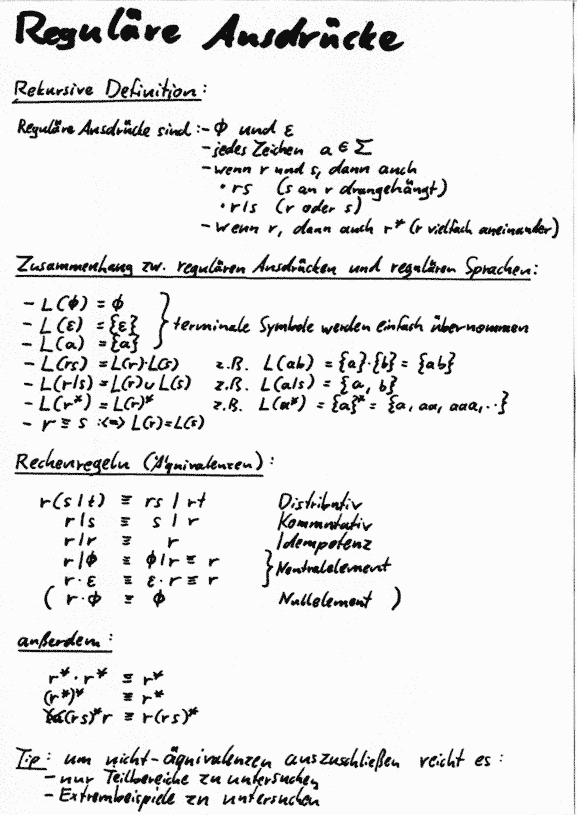 Reguläre Ausdrücke
Rekursive Definition:
Reguläre Ausdrücke sind: - ϕ und ε
- jedes Zeichen a ∈ Σ
- wenn r und s, dann auch
• rs (s an r drangehängt)
• r|s (r oder s)
- wenn r, dann auch r* (r vielfach aneinander)
Zusammenhang zw. regulären Ausdrücken und regulären Sprachen:
- L(ϕ) = ϕ
- L(ε) = {ε} } terminale Symbole werden einfach übernommen
- L(a) = {a}
- L(rs) = L(r)·L(s) z.B. L(ab) = {a}·{b} = {ab}
- L(r|s) = L(r) ∪ L(s) z.B. L(a|s) = {a, b}
- L(r*) = L(r)* z.B. L(a*) = {a}* = {a, aa, aaa, ..}
- r ≡ s :<=> L(r)=L(s)
Rechenregeln (Äquivalenzen):
r(s|t) ≡ rs | rt Distributiv
r|s ≡ s | r Kommutativ
r|r ≡ r Idempotenz
r|ϕ ≡ ϕ|r ≡ r } Neutralelement
r·ε ≡ ε·r ≡ r
( r·ϕ ≡ ϕ Nullelement )
außerdem:
r*·r* ≡ r*
(r*)* ≡ r*
(rs)*r ≡ r(rs)*
Tip: um nicht-äquivalenzen auszuschließen reicht es:
- nur Teilbereiche zu untersuchen
- Extrembeispiele zu untersuchen